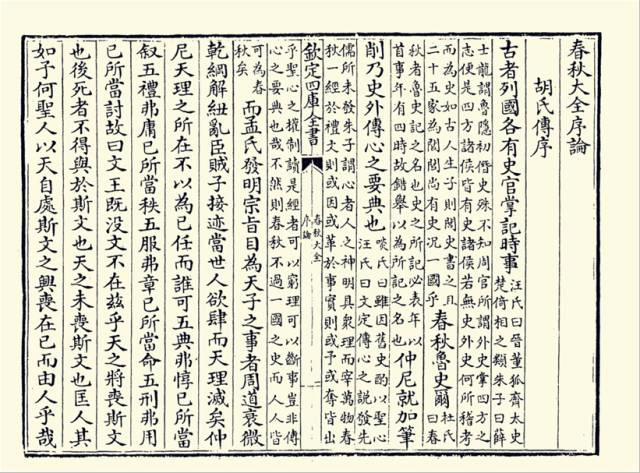 春秋大全序論
胡氏傳序
古者列國各有史官掌記時事
汪氏曰晉董狐齊太史
楚倚相之類朱子曰薛
士龍謂魯隱初僭史殊不知周官所謂外史掌四方之
志便是四方諸侯皆有史諸侯若無史外史何所稽考
而為史如古人生子則閭史書之且
二十五家為閭閭尚有史况一國乎
春秋魯史爾
杜氏
曰春
秋者魯史記之名也史之所記必表年以
首事年有四時故錯舉以為所記之名也
仲尼就加筆
削乃史外傳心之要典也
啖氏曰雖因舊史酌以聖心
汪氏曰文定傳心之說發先
儒所未發朱子謂心者人之神明具衆理而宰萬物春
秋一經於禮文則或因或革於事實則或予或奪皆出
欽定四庫全書
春秋大全
序論
乎聖心之權制讀是經者可以窮理可以斷事豈非傳
心之要典也哉不然則春秋不過一國之史而人人皆
可為春
秋矣
而孟氏發明宗旨目為天子之事者周道衰微
乾綱解紐亂臣賊子接迹當世人欲肆而天理滅矣仲
尼天理之所在不以為已任而誰可五典弗惇已所當
叙五禮弗庸已所當秩五服弗章已所當命五刑弗用
已所當討故曰文王既沒文不在兹乎天之將喪斯文
也後死者不得與於斯文也天之未喪斯文也匡人其
如予何聖人以天自處斯文之興喪在已而由人乎哉